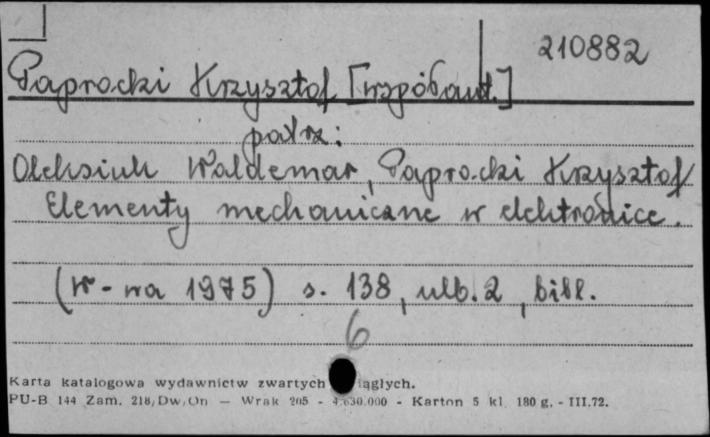 210882
Paprocki Krzysztof [współaut.]
patrz:
Oleksiuk Waldemar, Paprocki Krzysztof
Elementy mechaniczne w elektronice.
(W-wa 1975) s. 138, nlb. 2, bibl.
6
Karta katalogowa wydawnictw zwartych iągłych.
PU-B 144 Zam. 218/Dw/On — Wrak 205 - 4.630.000 - Karton 5 kl. 180 g. - III.72.